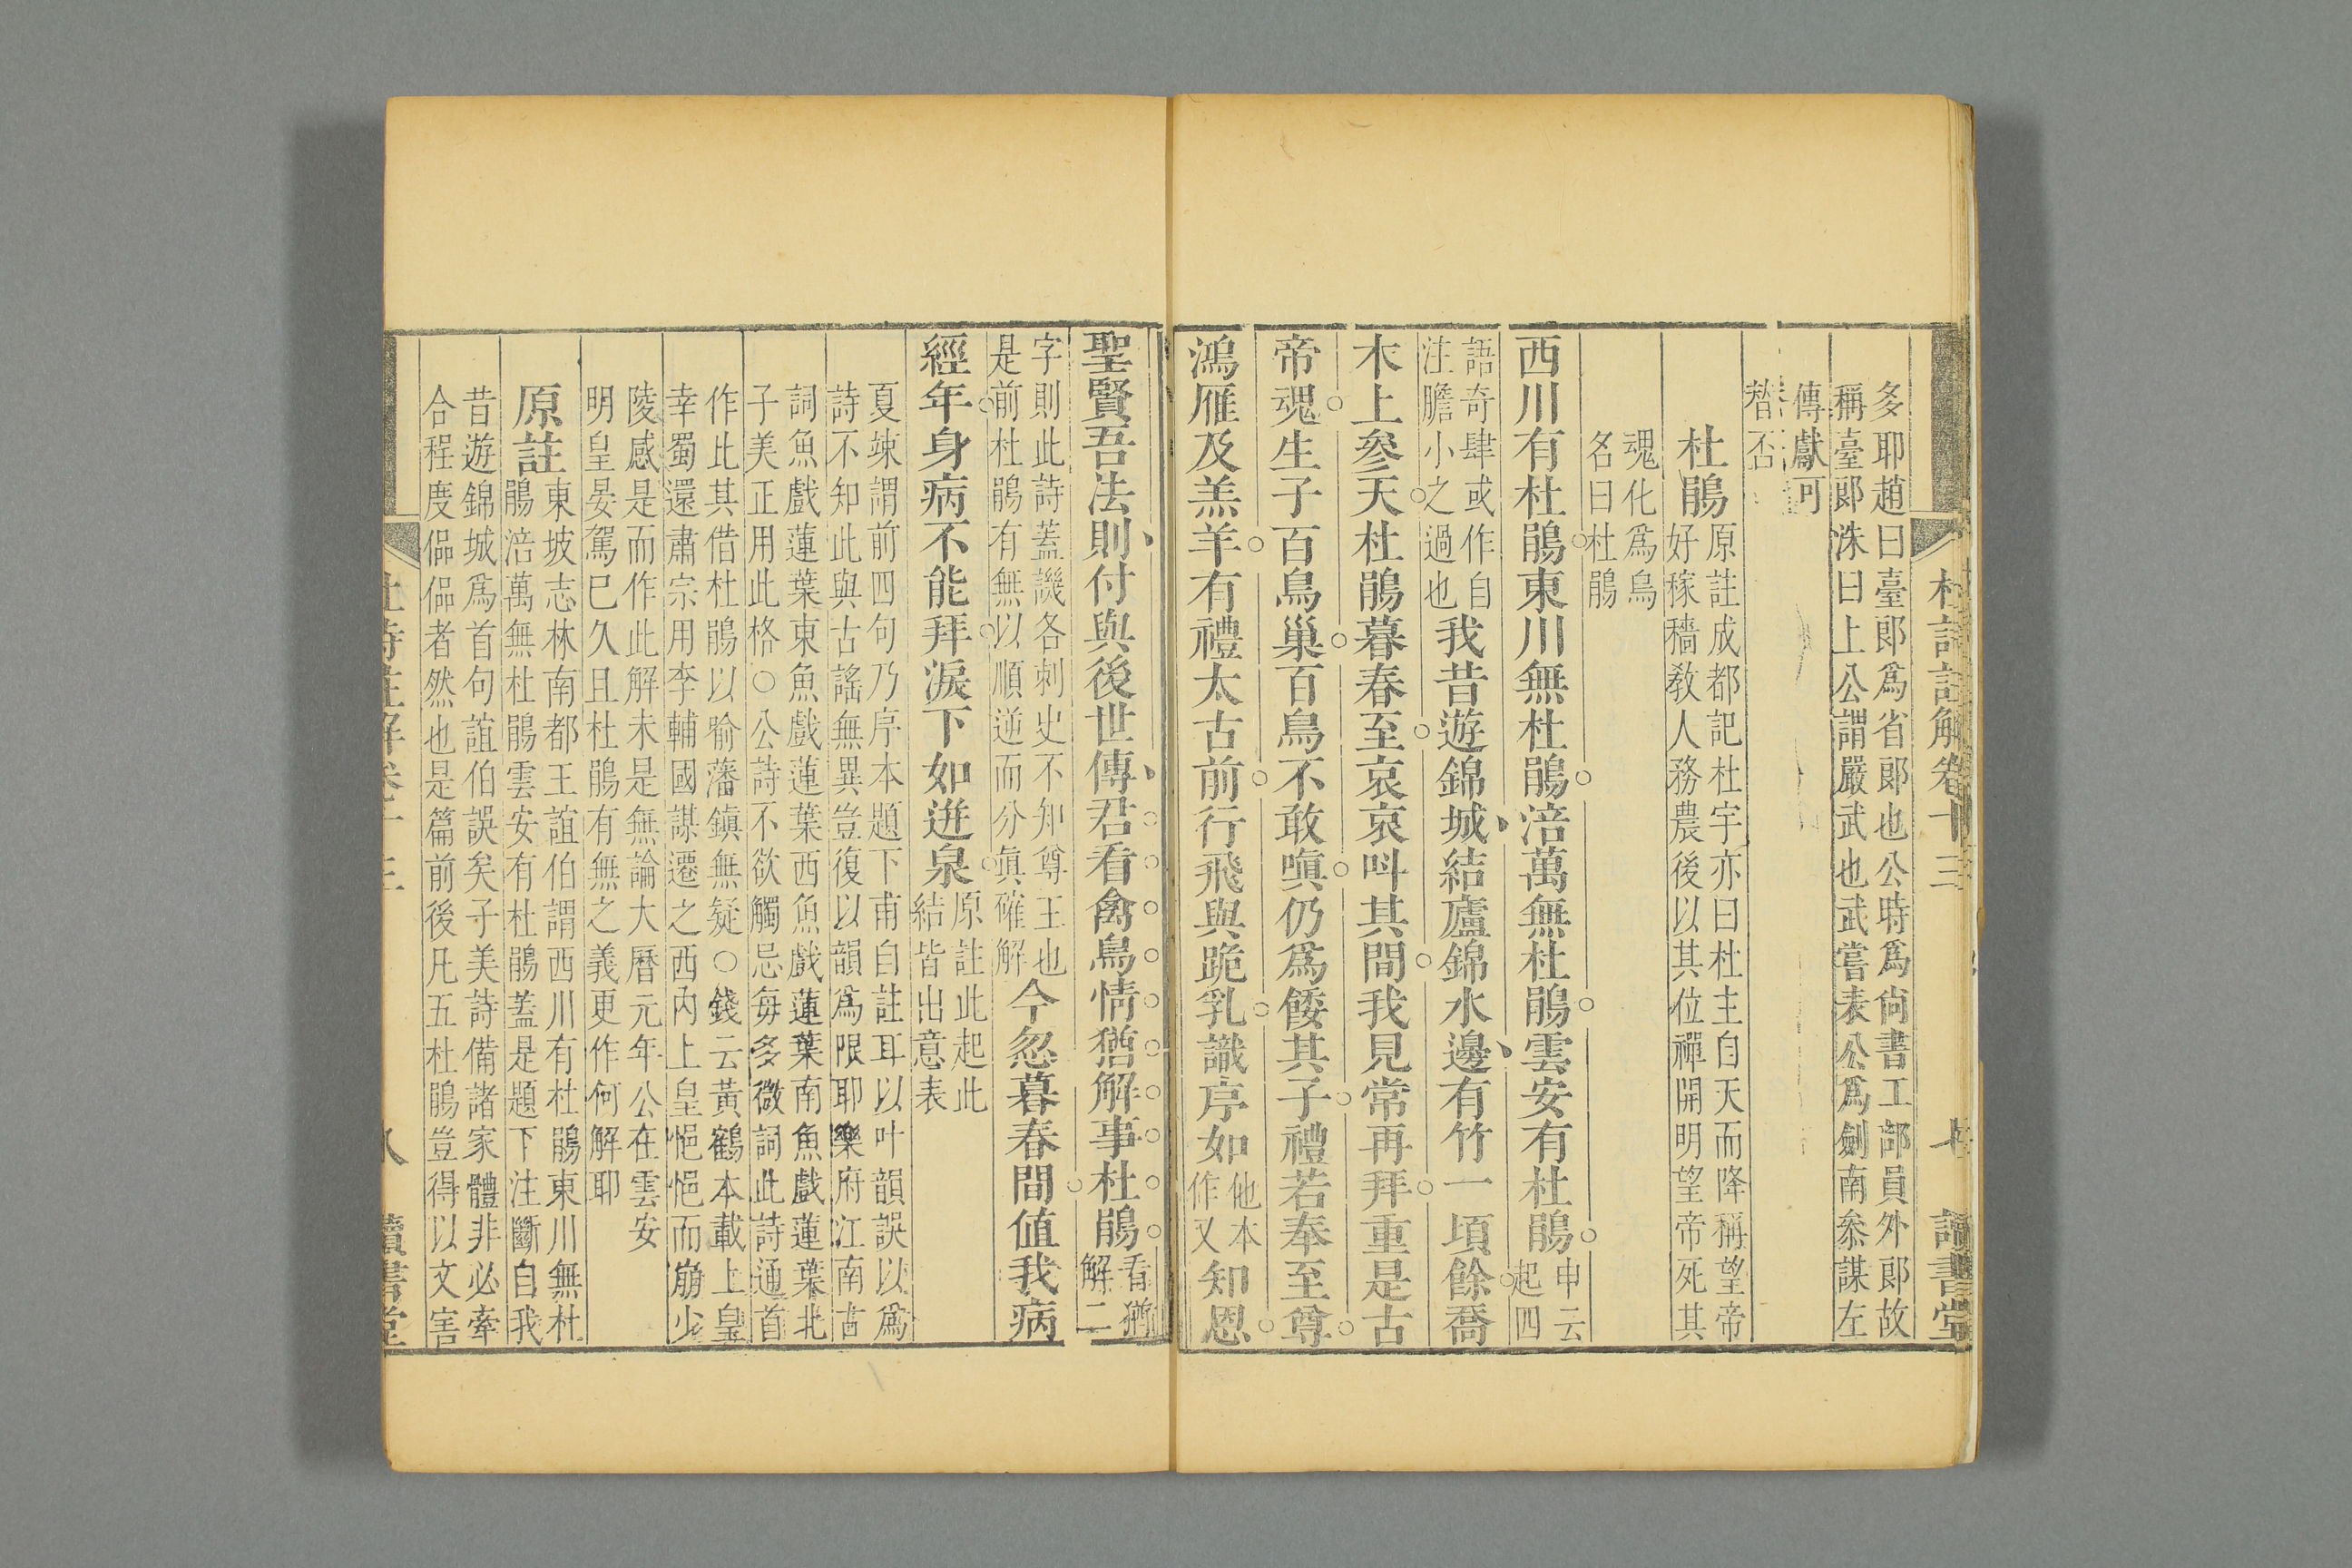 杜詩註解卷十三 七 讀書堂
多耶趙曰臺郞爲省郞也公時爲尙書工部員外郞故
稱臺郞洙曰上公謂嚴武也武嘗表公爲劍南叅謀左
傳獻可
替否
杜鵑原註成都記杜宇亦曰杜主自天而降稱望帝
好稼穡敎人務農後以其位禪開明望帝死其
魂化爲鳥
名曰杜鵑
西川有杜鵑東川無杜鵑涪萬無杜鵑雲安有杜鵑申云
起四
語奇肆或作自
注膽小之過也我昔遊錦城結廬錦水邊有竹一頃餘喬
木上參天杜鵑暮春至哀哀叫其間我見常再拜重是古
帝魂生子百鳥巢百鳥不敢嗔仍爲餧其子禮若奉至尊
鴻雁及羔羊有禮太古前行飛與跪乳識序如他本
作又知恩
聖賢吾法則付與後世傳君看禽鳥情猶解事杜鵑看猶
解二
字則此詩蓋譏各刺史不知尊王也
是前杜鵑有無以順逆而分眞確解今忽暮春間值我病
經年身病不能拜淚下如迸泉原註此起此
結皆出意表
夏竦謂前四句乃序本題下甫自註耳以叶韻誤以爲
詩不知此與古謠無異豈復以韻爲限耶樂府江南古
詞魚戲蓮葉東魚戲蓮葉西魚戲蓮葉南魚戲蓮葉北
子美正用此格○公詩不欲觸忌每多微詞此詩通首
作此其借杜鵑以喻藩鎭無疑○錢云黃鶴本載上皇
幸蜀還肅宗用李輔國謀遷之西內上皇悒悒而崩少
陵感是而作此解未是無論大曆元年公在雲安
明皇晏駕巳久且杜鵑有無之義更作何解耶
原註東坡志林南都王誼伯謂西川有杜鵑東川無杜
鵑涪萬無杜鵑雲安有杜鵑蓋是題下注斷自我
昔遊錦城爲首句誼伯誤矣子美詩備諸家體非必牽
合程度偘偘者然也是篇前後凡五杜鵑豈得以文害
杜詩註解卷十三 八 讀書堂